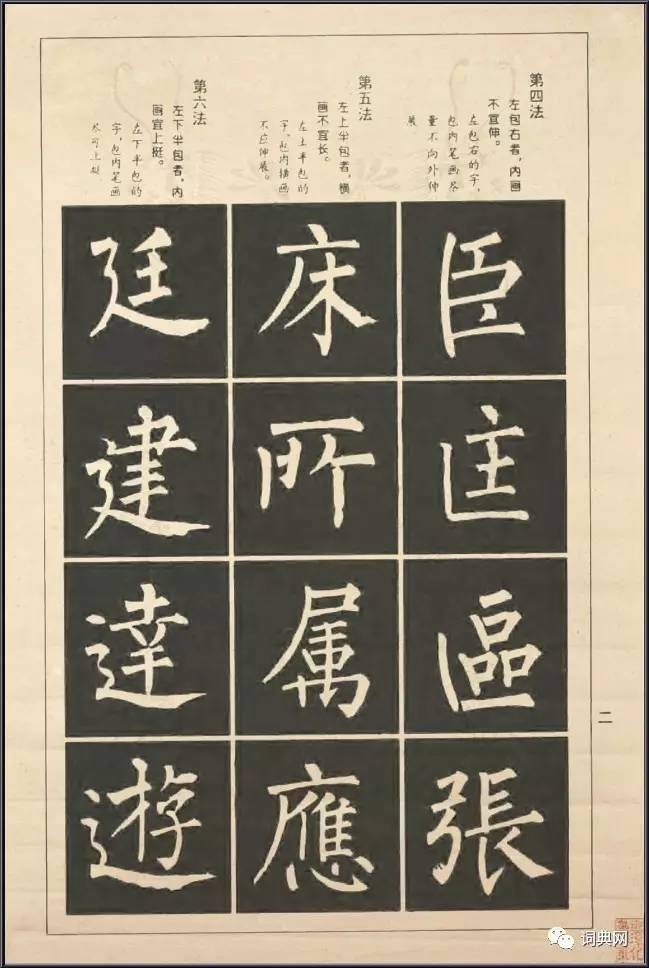 第四法
左包右者，内画
不宜伸。
左包右的字，
包内笔画尽
量不向外伸
展
臣
匡
區
張
第五法
左上半包者，横
画不宜长。
左上半包的
字，包内横画
不应伸展。
床
所
属
應
第六法
左下半包者，内
画宜上挺。
左下半包的
字，包内笔画
尽可上挺
廷
建
達
遊
二
词典网